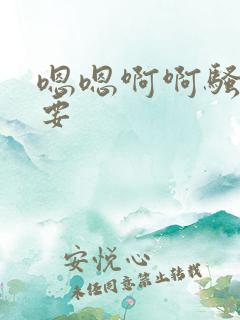 嗯嗯啊啊骚
要
安悦心
未经同意禁止转载